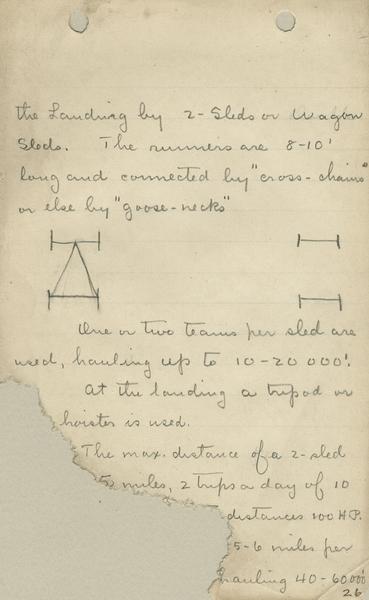 the Landing by 2-Sleds or Wagon
Sleds. The runners are 8-10'
long and connected by "cross-chains"
or else by "goose-necks"
One or two teams per sled are
used, hauling up to 10-20 000'.
At the landing a tripod or
hoister is used.
The max. distance of a 2-sled
miles, 2 trips a day of 10
distances 100 H.P.
5-6 miles per
hauling 40-60000
26